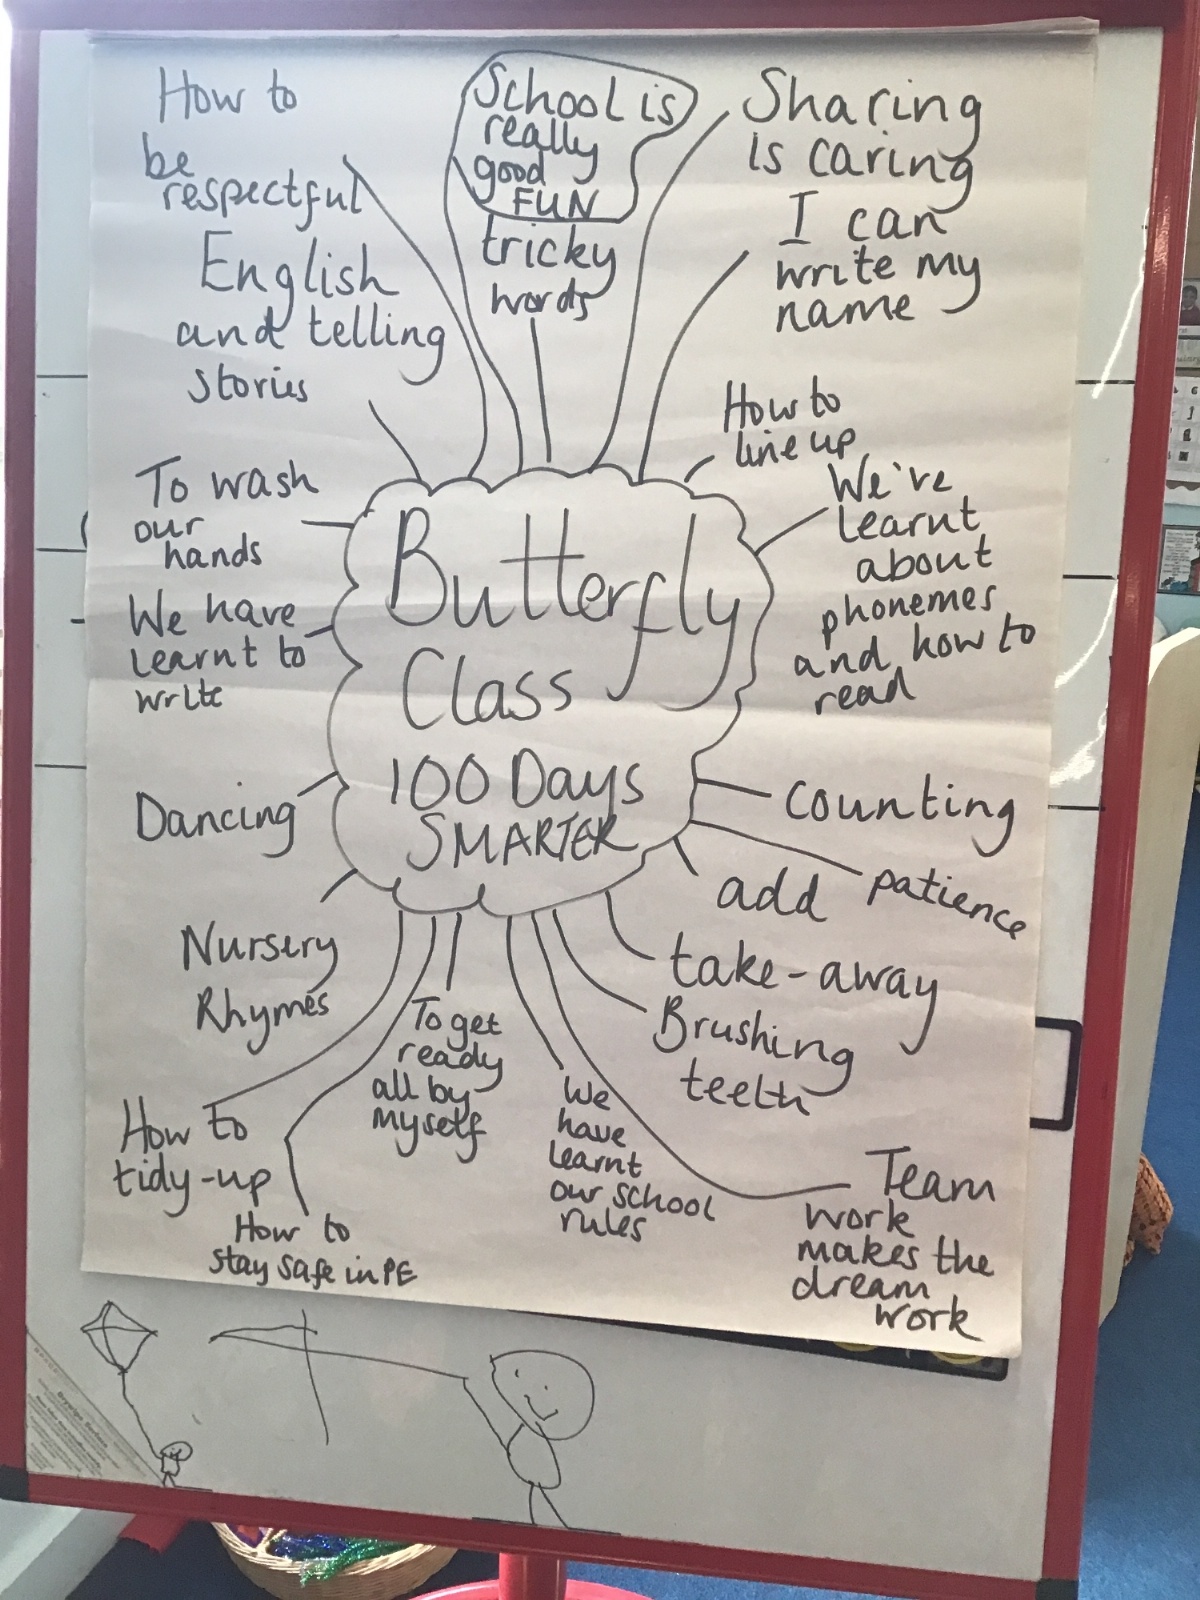 How to
be
respectful
School is
really
good
FUN
tricky
words
Sharing
is caring
I can
write my
name
English
and telling
stories
How to
line up
To wash
our
hands
We've
learnt
about
phonemes
and how to
read
Butterfly
Class
100 Days
SMARTER
We have
learnt to
write
Dancing
Counting
patience
add
Nursery
Rhymes
take-away
Brushing
teeth
To get
ready
all by
myself
We
have
learnt
our school
rules
How to
tidy-up
How to
stay safe in PE
Team
work
makes the
dream
work